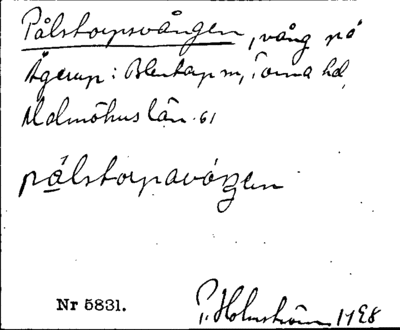 Pålstorpsvången, vång på
Ågerup: Blentarp sn, Torna hd,
Malmöhus län. 61
pålstorpavóŋen
Nr 5831.
P. Holmström 1928